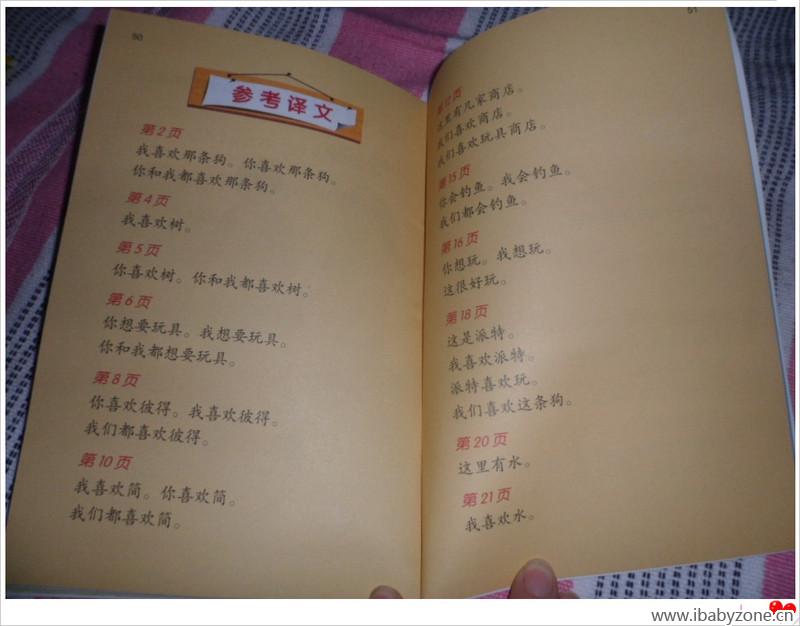 50
参考译文
第2页
我喜欢那条狗。你喜欢那条狗。
你和我都喜欢那条狗。
第4页
我喜欢树。
第5页
你喜欢树。你和我都喜欢树。
第6页
你想要玩具。我想要玩具。
你和我都想要玩具。
第8页
你喜欢彼得。我喜欢彼得。
我们都喜欢彼得。
第10页
我喜欢简。你喜欢简。
我们都喜欢简。
51
第12页
这里有几家商店。
我们喜欢商店。
我们喜欢玩具商店。
第15页
你会钓鱼。我会钓鱼。
我们都会钓鱼。
第16页
你想玩。我想玩。
这很好玩。
第18页
这是派特。
我喜欢派特。
派特喜欢玩。
我们喜欢这条狗。
第20页
这里有水。
第21页
我喜欢水。
www.ibabyzone.cn